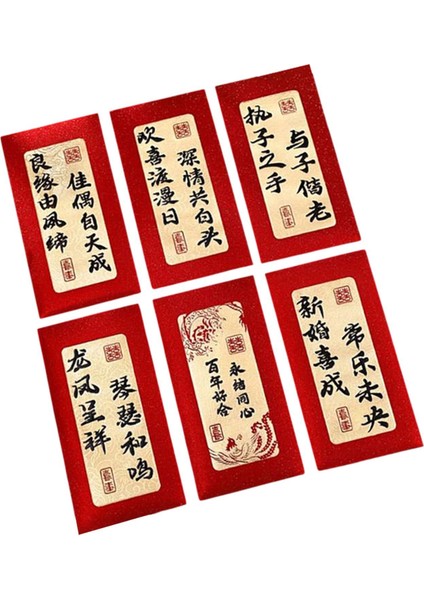 良缘由夙缔
佳偶自天成
欢喜浪漫日
深情共白头
执子之手
与子偕老
龙凤呈祥
琴瑟和鸣
百年好合
永结同心
新婚喜成
常乐未央